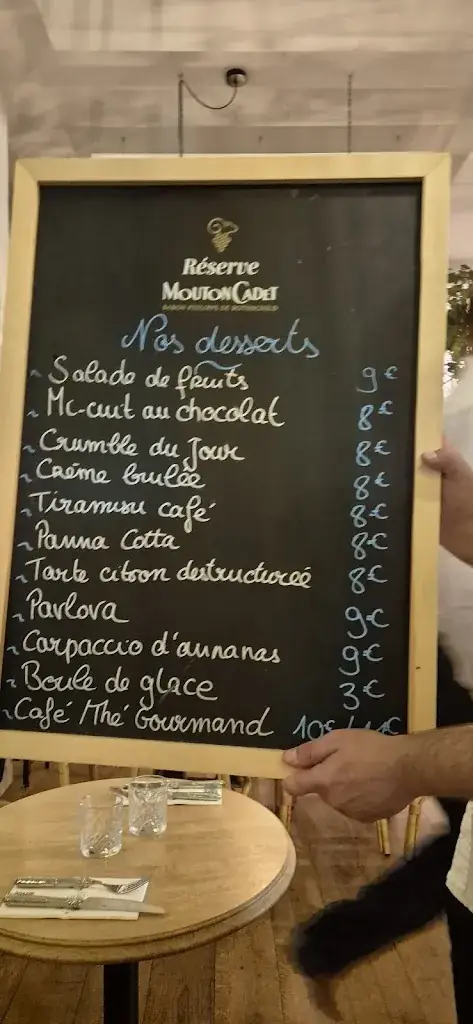 Réserve
MOUTON CADET
BARON PHILIPPE DE ROTHSCHILD
Nos desserts
~ Salade de fruits 9€
~ Mi-cuit au chocolat 8€
~ Crumble du Jour 8€
~ Crème brulée 8€
~ Tiramisu café 8€
~ Panna Cotta 8€
~ Tarte citron destructureé 8€
~ Pavlova 9€
~ Carpaccio d'annanas 9€
~ Boule de glace 3€
~ Café / Thé Gourmand 10€ / 11€